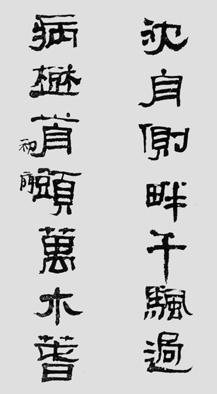 沈舟側畔千颿過
病樹前頭萬木春